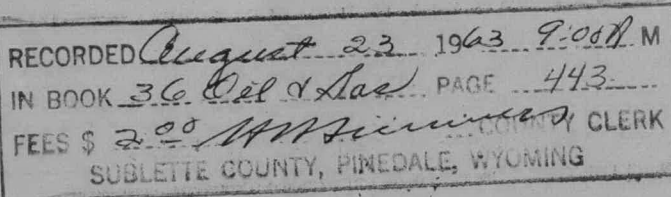 RECORDED August 23 1963 9:00 A M
IN BOOK 36 Oil & Gas PAGE 443
FEES $ 2.00 COUNTY CLERK
SUBLETTE COUNTY, PINEDALE, WYOMING